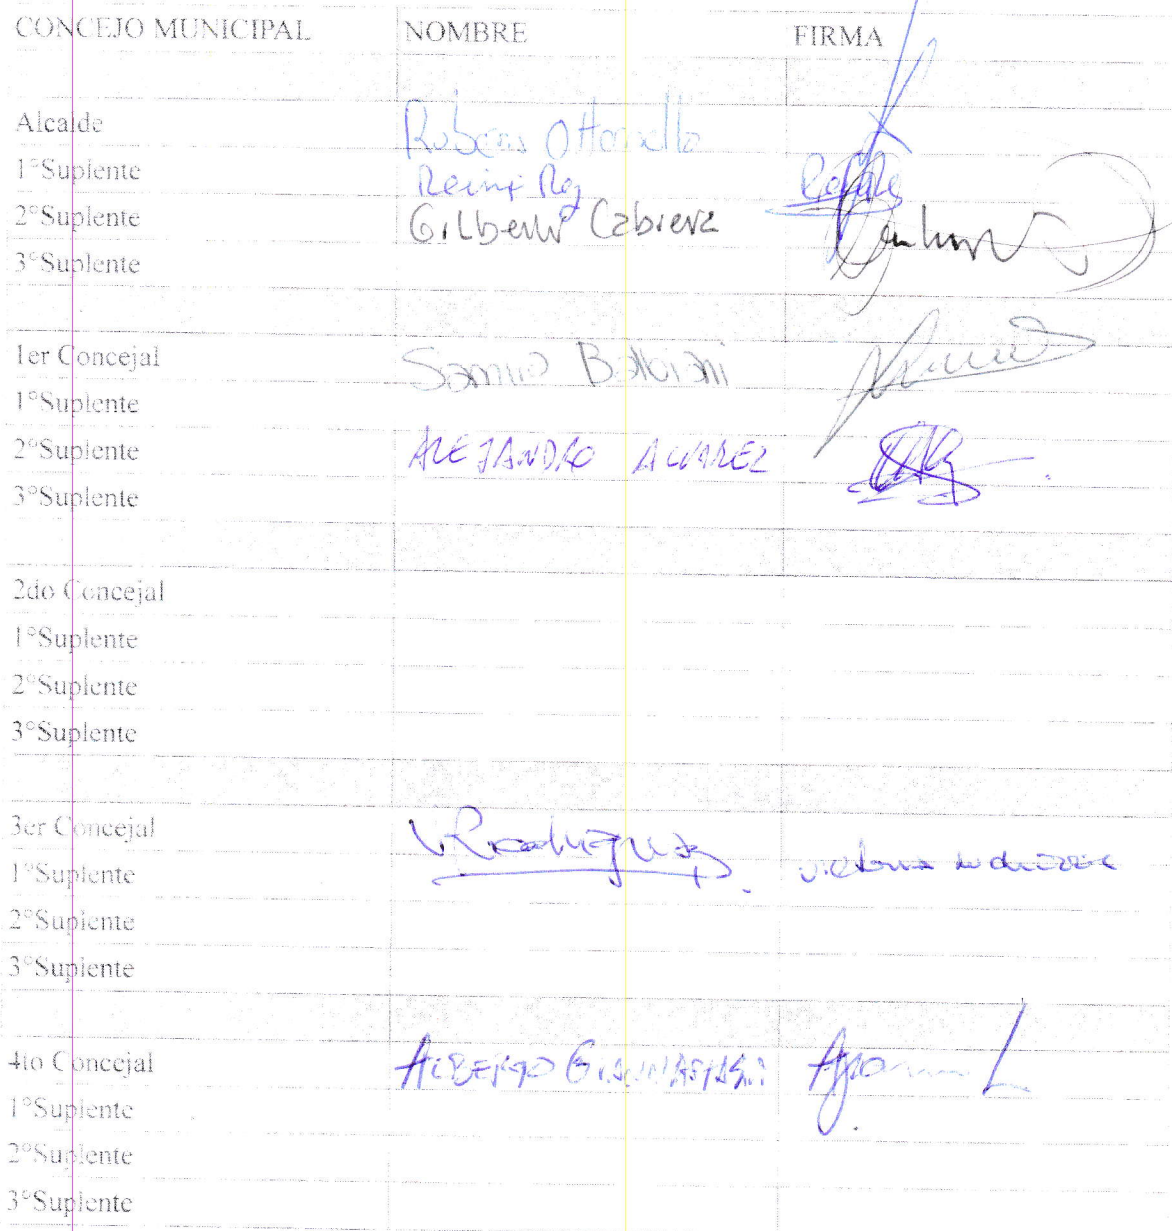 CONCEJO MUNICIPAL NOMBRE FIRMA
Alcalde Ruben Ottonello
1°Suplente Reina Rey
2°Suplente Gilberto Cabrera
3°Suplente
1er Concejal Samira Balbiani
1°Suplente
2°Suplente ALEJANDRO ALVAREZ
3°Suplente
2do Concejal
1°Suplente
2°Suplente
3°Suplente
3er Concejal V. Rodriguez
1°Suplente
2°Suplente
3°Suplente
4to Concejal ALBERTO
1°Suplente
2°Suplente
3°Suplente